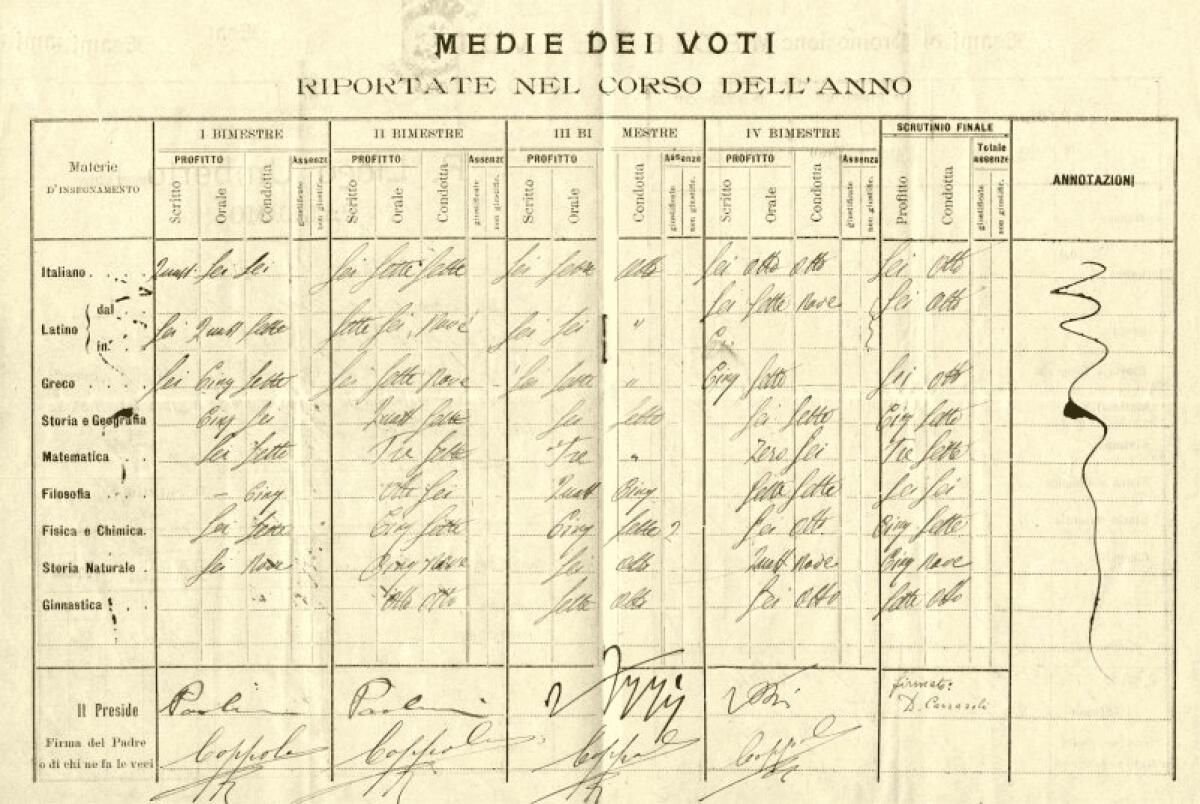 MEDIE DEI VOTI
RIPORTATE NEL CORSO DELL'ANNO
Materie D'INSEGNAMENTO
I BIMESTRE II BIMESTRE III BIMESTRE IV BIMESTRE SCRUTINIO FINALE ANNOTAZIONI
PROFITTO Assenze PROFITTO Assenze PROFITTO Assenze PROFITTO Assenze Totale assenze
Scritto Orale Condotta giustificate non giustific. Scritto Orale Condotta giustificate non giustific. Scritto Orale Condotta giustificate non giustific. Scritto Orale Condotta giustificate non giustific. Profitto Condotta giustificate non giustific.
Italiano Quatt Sei Sei Sei Sette Sette Sei Sette Otto Sei Otto Otto Sei Otto
dal Sei Sette Nove Sei Otto
Latino Sei Quatt Sette Sette Sei Nove Sei Sei "
in
Greco Sei Cinq Sette Sei Sette Nove Sei Sette " Cinq Sette Sei Otto
Storia e Geografia Cinq Sei Quatt Sette Sei Sette Sei Sette Cinq Sette
Matematica Sei Sette Tre Sette Tre " Zero Sei Tre Sette
Filosofia – Cinq Otto Sei Quatt Cinq Sette Sette Sei Sei
Fisica e Chimica. Sei Sette Cinq Sette Cinq Sette ? Sei Otto Cinq Sette
Storia Naturale Sei Nove Cinq Nove Sei Otto Quatt Nove Cinq Nove
Ginnastica Otto Otto Sette Otto Sei Otto Sette Otto
Il Preside firmato:
Firma del Padre
o di chi ne fa le veci Coppola Coppola Coppola